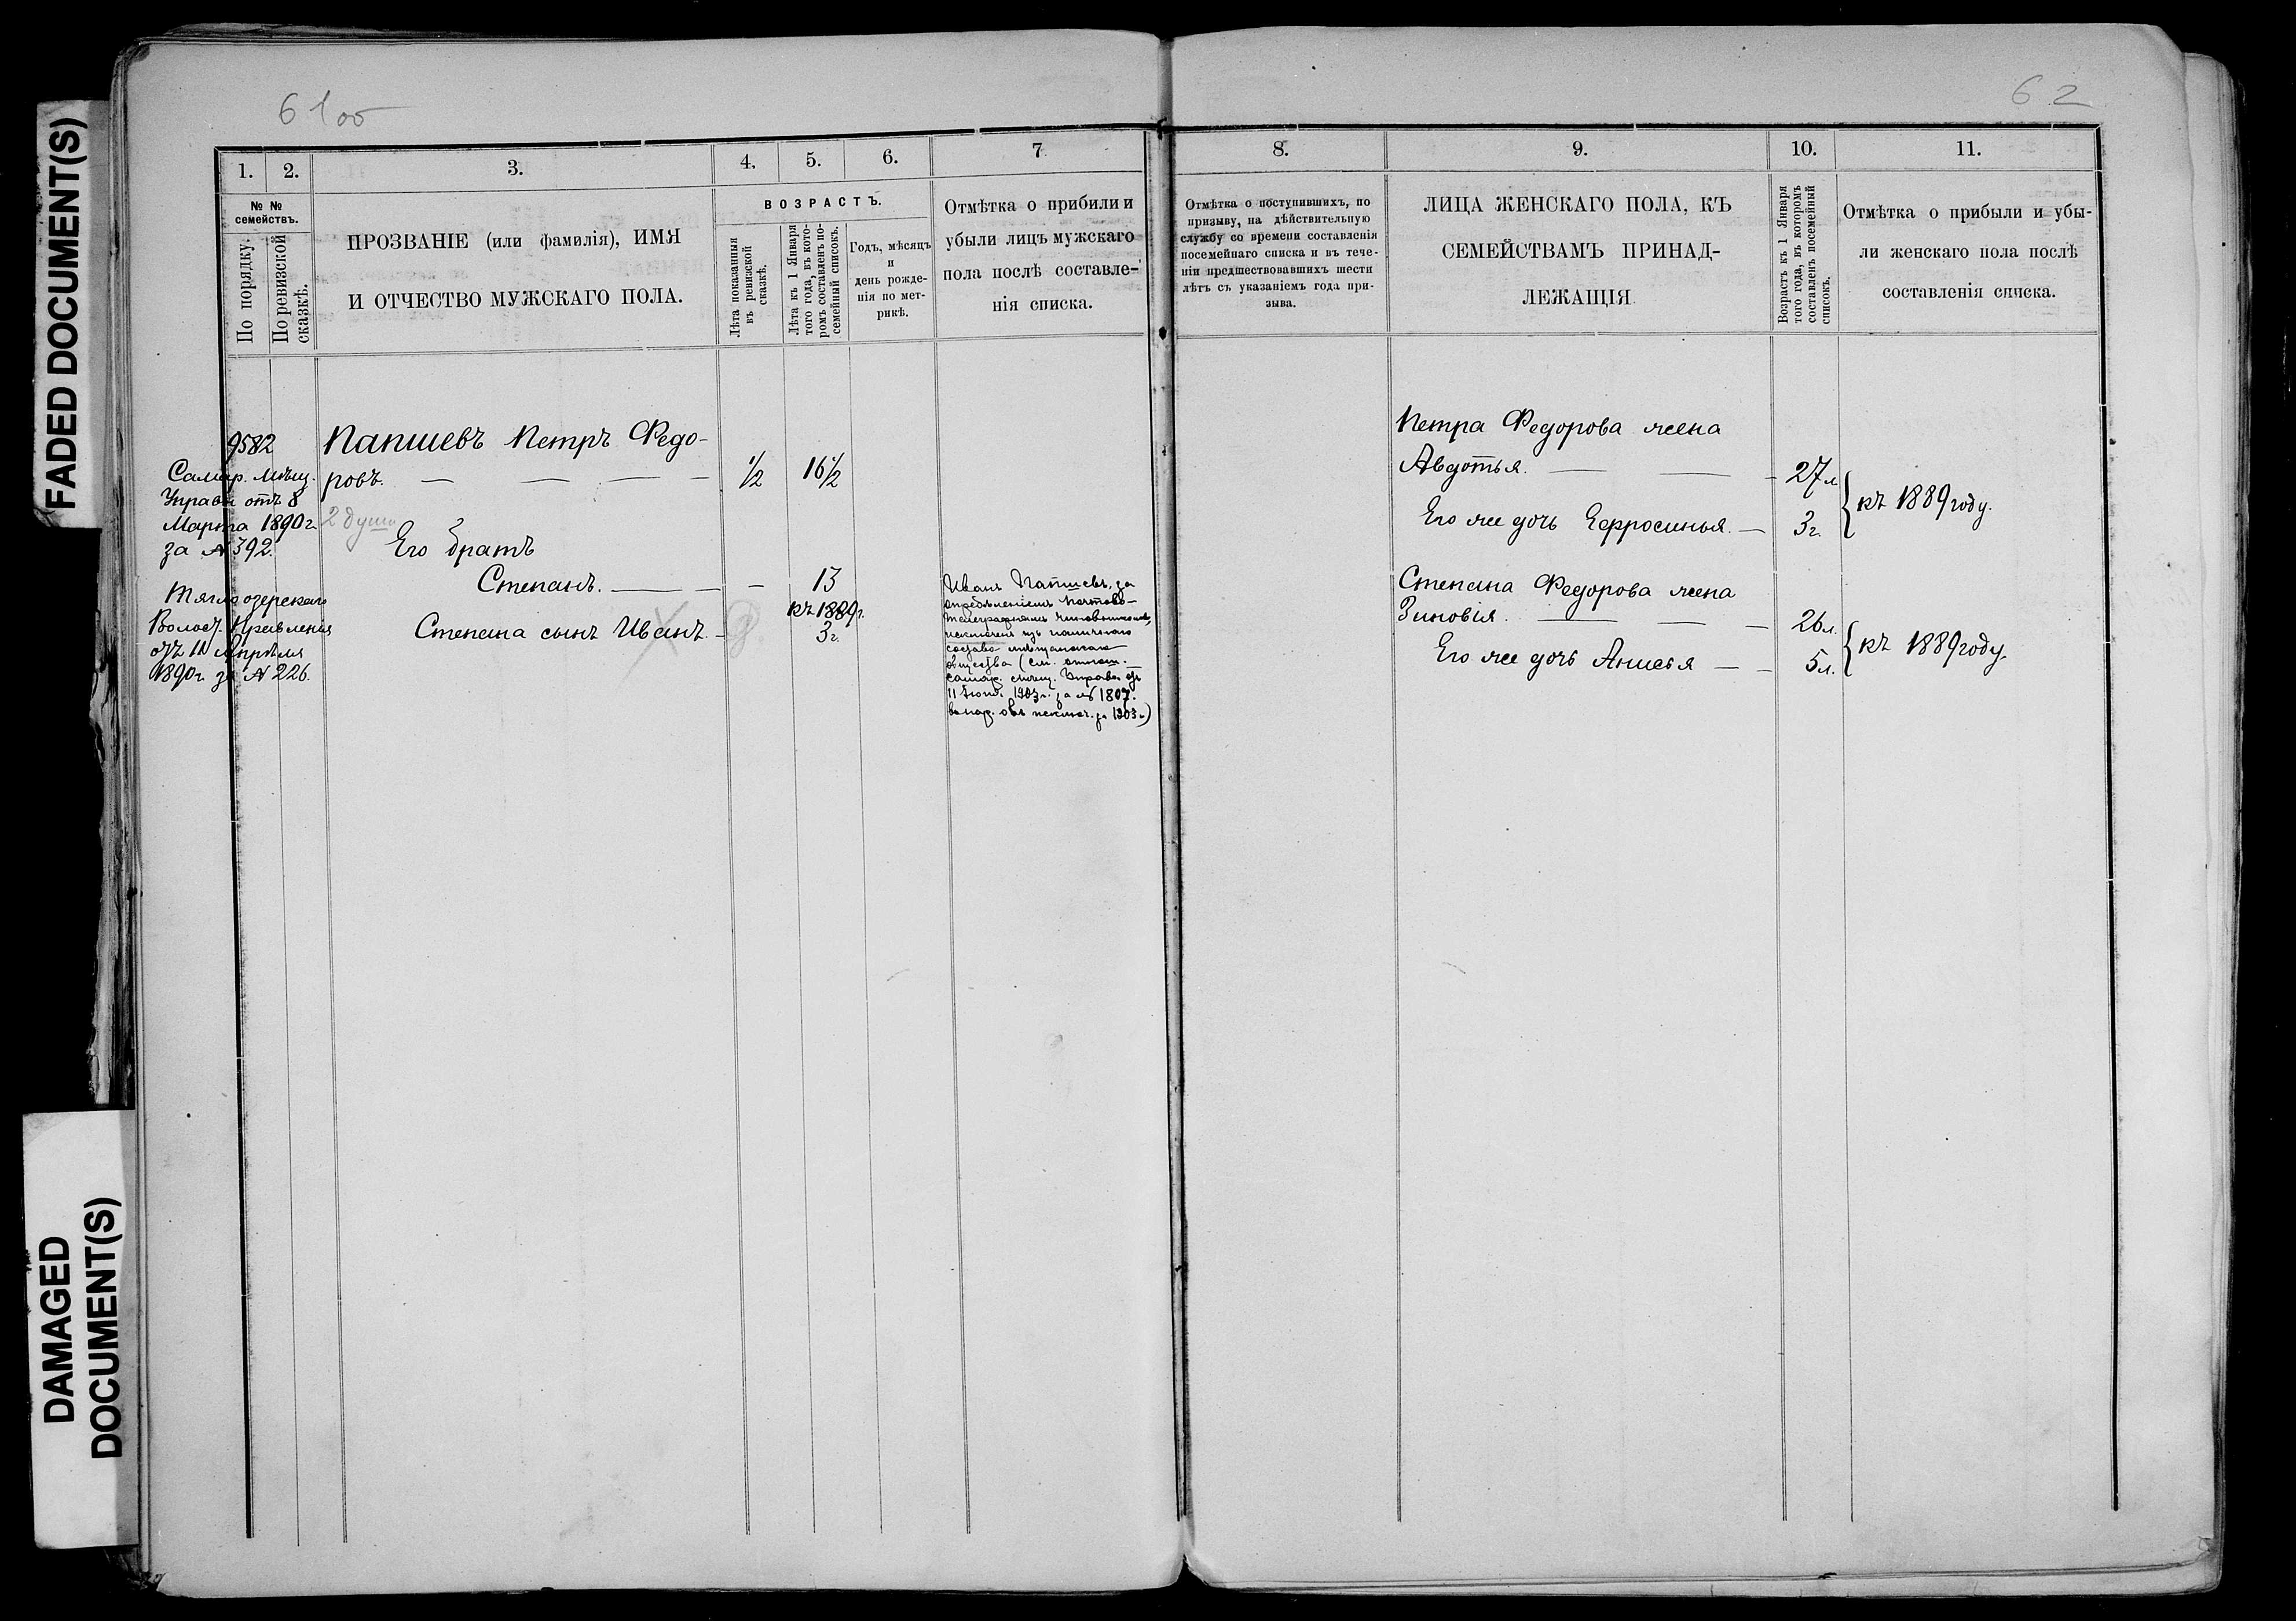 FADED DOCUMENT(S)
DAMAGED
DOCUMENT(S)
61 об
1.
2.
3.
4.
5.
6.
7
№ №
семействъ.
По порядку.
По ревизской
сказкѣ.
ПРОЗВАНІЕ (или фамилія), ИМЯ
И ОТЧЕСТВО МУЖСКАГО ПОЛА.
ВОЗРАСТЪ.
Лѣта показанныя
въ ревизской
сказкѣ.
Лѣта къ 1 Января
того года, въ кото-
ромъ составленъ по-
семейный списокъ.
Годъ, мѣсяцъ
и
день рожде-
нія по мет-
рикѣ.
Отмѣтка о прибыли и
убыли лицъ мужскаго
пола послѣ составле-
нія списка.
9582
Самар. Мѣщ.
Управы отъ 8
Марта 1890 г.
за № 392.
Тяглоозерскаго
Волост. Правленія
отъ 11 Апрѣля
1890 г. за № 226.
Папшевъ Петръ Федо-
ровъ. 1/2 16 1/2
2 души
Его братъ
Степанъ. — 13
къ 1889 г.
Степана сынъ Иванъ. — 3 г.
Иванъ Папшевъ, за
опредѣленіемъ почтово-
телеграфнымъ чиновникомъ,
исключенъ изъ наличнаго
состава мѣщанскаго
общества (см. отнош.
самар. мѣщ. Управы отъ
1903 г. за № 1807.
исключ. за 1903 г.)
62
8.
9.
10.
11.
Отмѣтка о поступившихъ, по
призыву, на дѣйствительную
службу со времени составленія
посемейнаго списка и въ тече-
ніи предшествовавшихъ шести
лѣтъ съ указаніемъ года при-
зыва.
ЛИЦА ЖЕНСКАГО ПОЛА, КЪ
СЕМЕЙСТВАМЪ ПРИНАД-
ЛЕЖАЩІЯ
Возрастъ къ 1 Января
того года, въ которомъ
составленъ посемейный
списокъ.
Отмѣтка о прибыли и убы-
ли женскаго пола послѣ
составленія списка.
Петра Федорова жена
Авдотья. 27 л.
Его же дочь Ефросинья. 3 г.
къ 1889 году.
Степана Федорова жена
Зиновія. 26 л.
Его же дочь Анисья 5 л.
къ 1889 году.